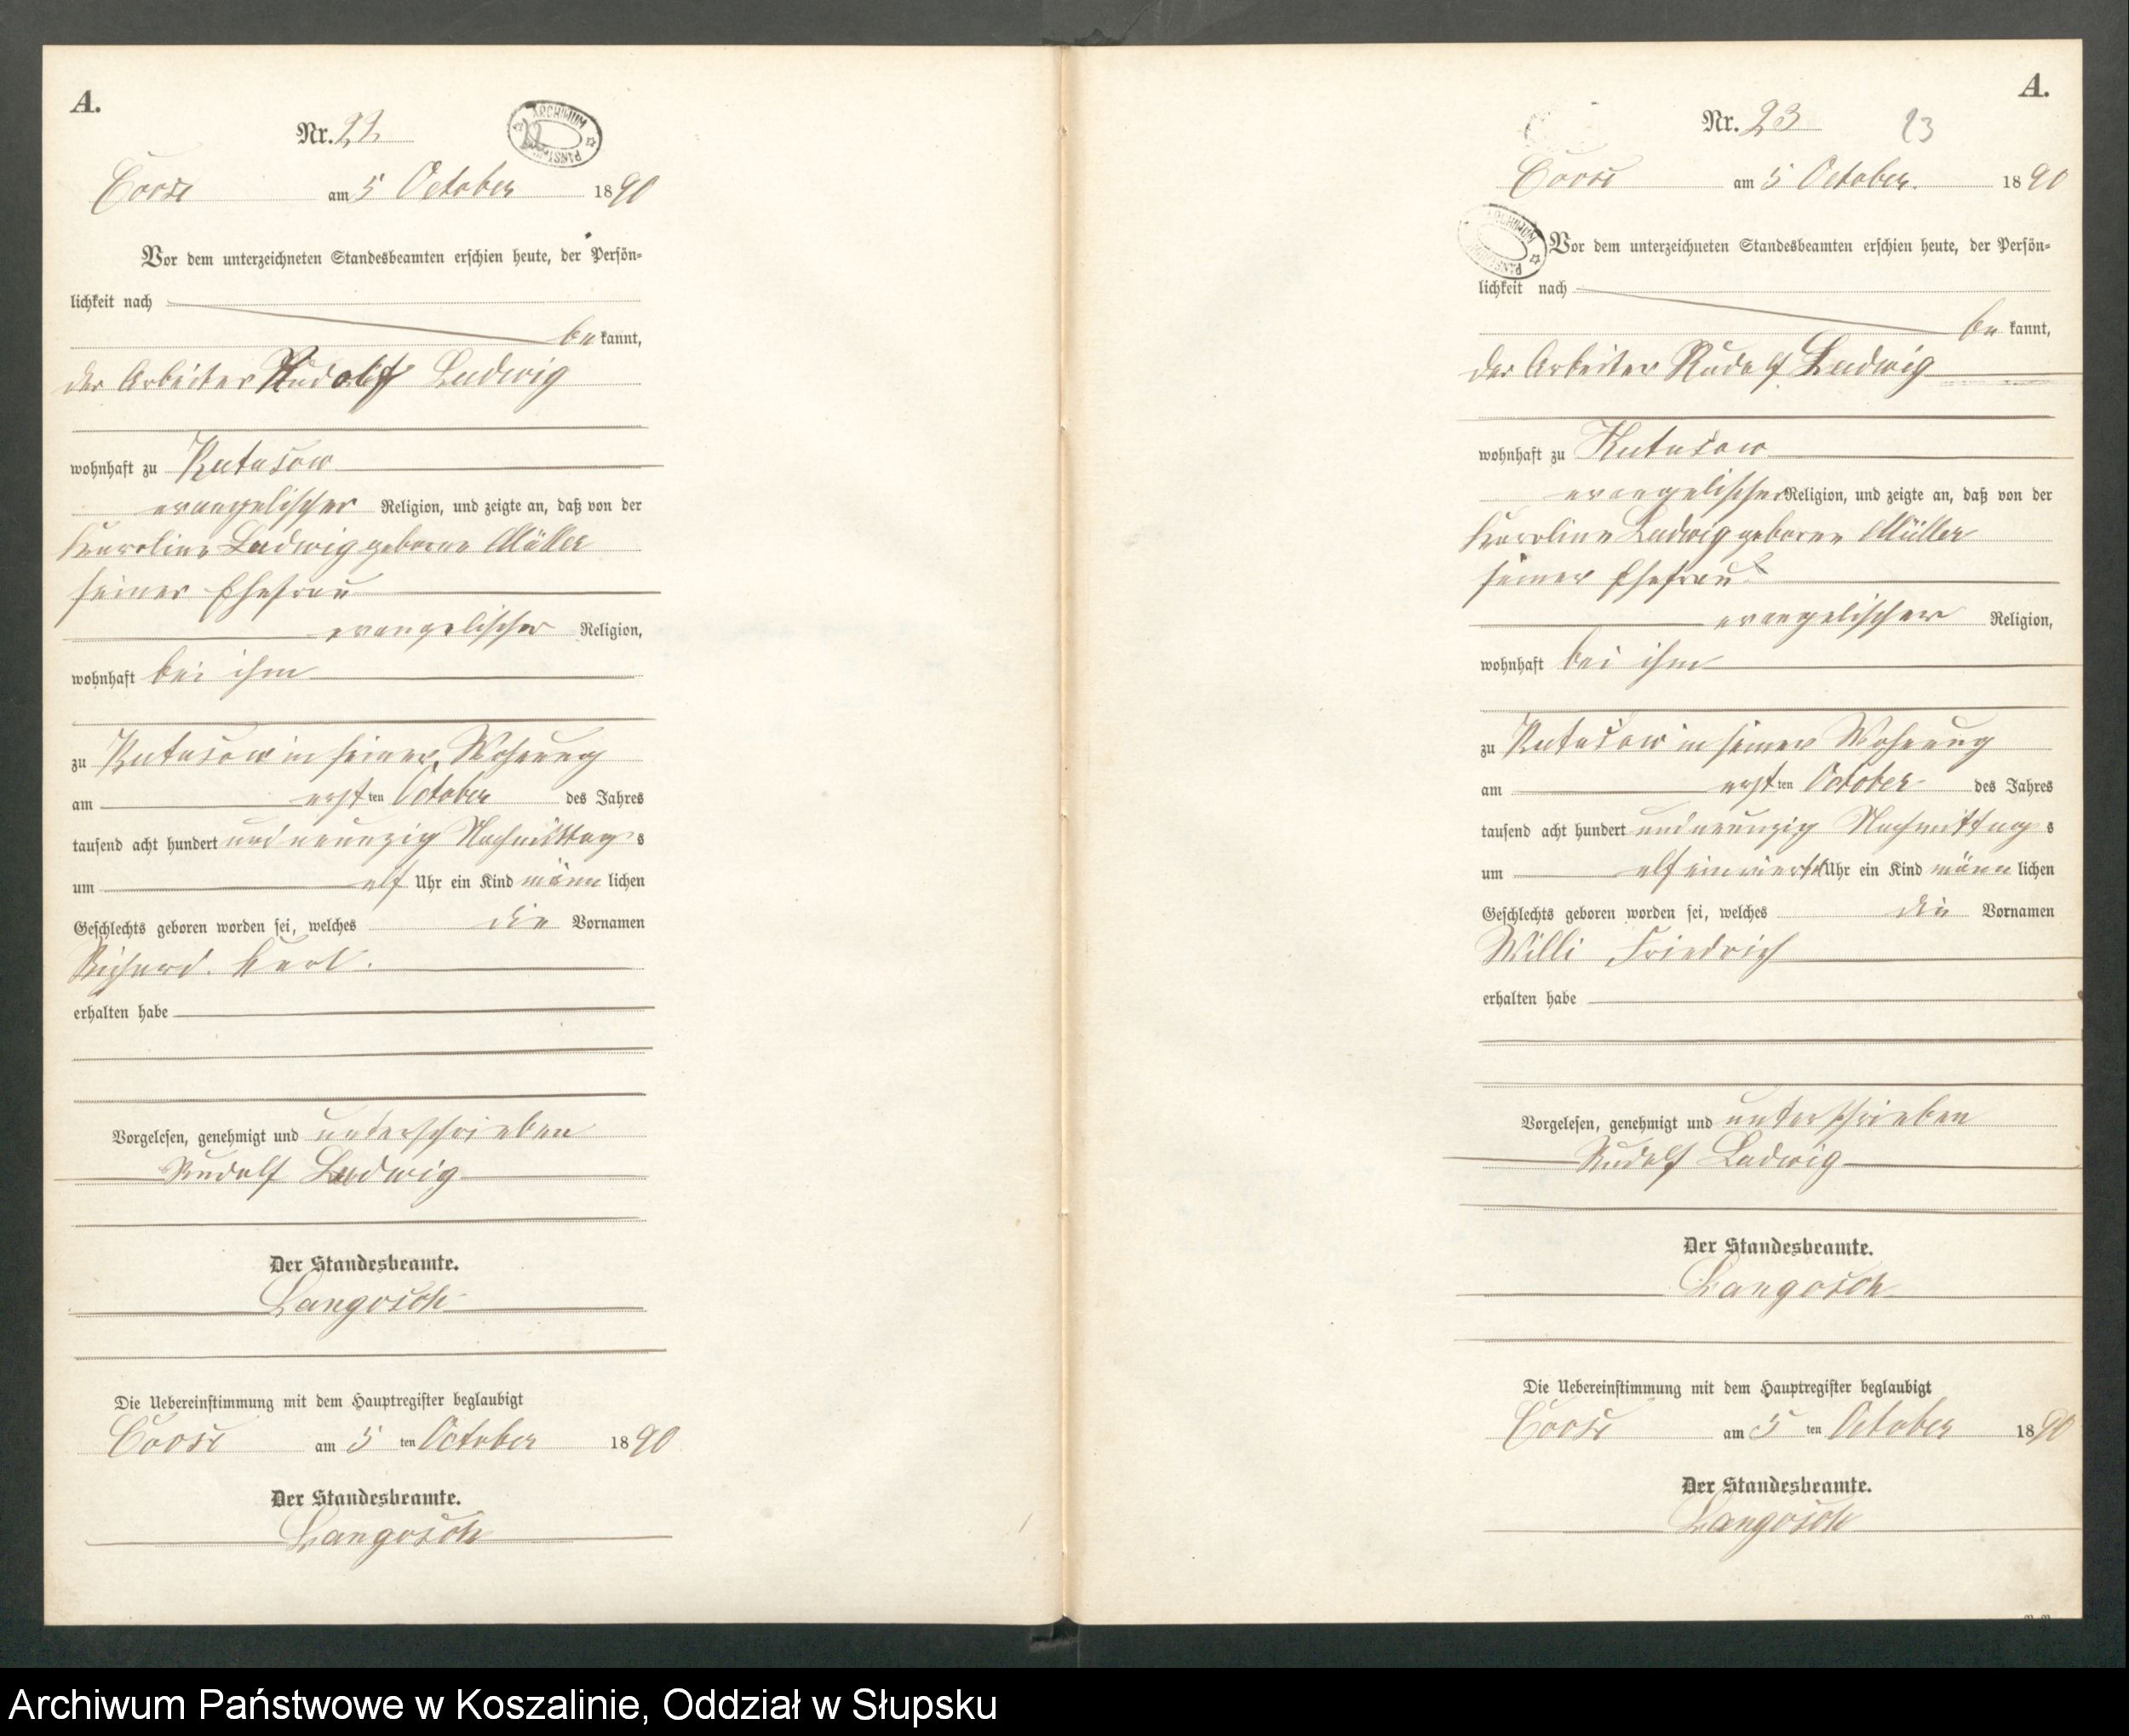 A.
Nr. 22
ARCHIWUM PAŃSTW
Coose am 5 October 1890
Vor dem unterzeichneten Standesbeamten erschien heute, der Persön=
lichkeit nach
be kannt,
der Arbeiter Rudolf Ludwig
wohnhaft zu Kutusow
evangelischer Religion, und zeigte an, daß von der
Karoline Ludwig geborne Müller
seiner Ehefrau
evangelischer Religion,
wohnhaft bei ihm
zu Kutusow in seiner Wohnung
am ersten October des Jahres
tausend acht hundert und neunzig Nachmittags
um elf Uhr ein Kind männlichen
Geschlechts geboren worden sei, welches die Vornamen
Richard. Karl.
erhalten habe
Vorgelesen, genehmigt und unterschrieben
Rudolf Ludwig
Der Standesbeamte.
Langosch
Die Uebereinstimmung mit dem Hauptregister beglaubigt
Coose am 5 ten October 1890
Der Standesbeamte.
Langosch
A.
Nr. 23 23
Coose am 5 October. 1890
ARCHIWUM PAŃSTW
Vor dem unterzeichneten Standesbeamten erschien heute, der Persön=
lichkeit nach
be kannt,
der Arbeiter Rudolf Ludwig
wohnhaft zu Kutusow
evangelischer Religion, und zeigte an, daß von der
Karoline Ludwig geborne Müller
seiner Ehefrau
evangelischer Religion,
wohnhaft bei ihm
zu Kutusow in seiner Wohnung
am ersten October des Jahres
tausend acht hundert und neunzig Nachmittags
um elf ein viertel Uhr ein Kind männlichen
Geschlechts geboren worden sei, welches die Vornamen
Willi Friedrich
erhalten habe
Vorgelesen, genehmigt und unterschrieben
Rudolf Ludwig
Der Standesbeamte.
Langosch
Die Uebereinstimmung mit dem Hauptregister beglaubigt
Coose am 5 ten October 1890
Der Standesbeamte.
Langosch
Archiwum Państwowe w Koszalinie, Oddział w Słupsku